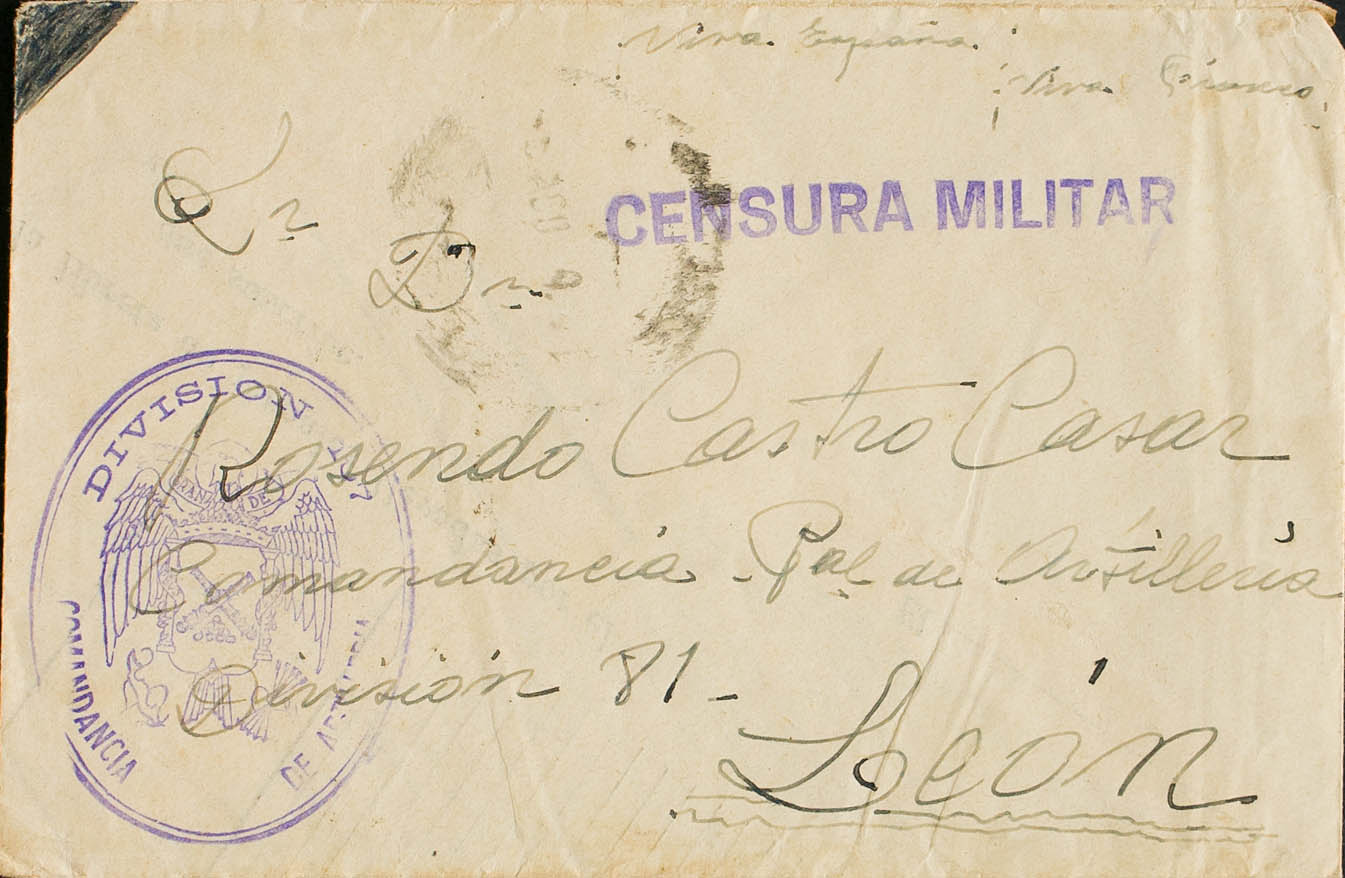 Viva España.
¡Viva Franco!
Sr
Dn
CENSURA MILITAR
Rosendo Castro Casar
Comandancia Pal de Artilleria
División 81-
León
DIVISION
GRANDE
COMANDANCIA
DE ARTILLERIA